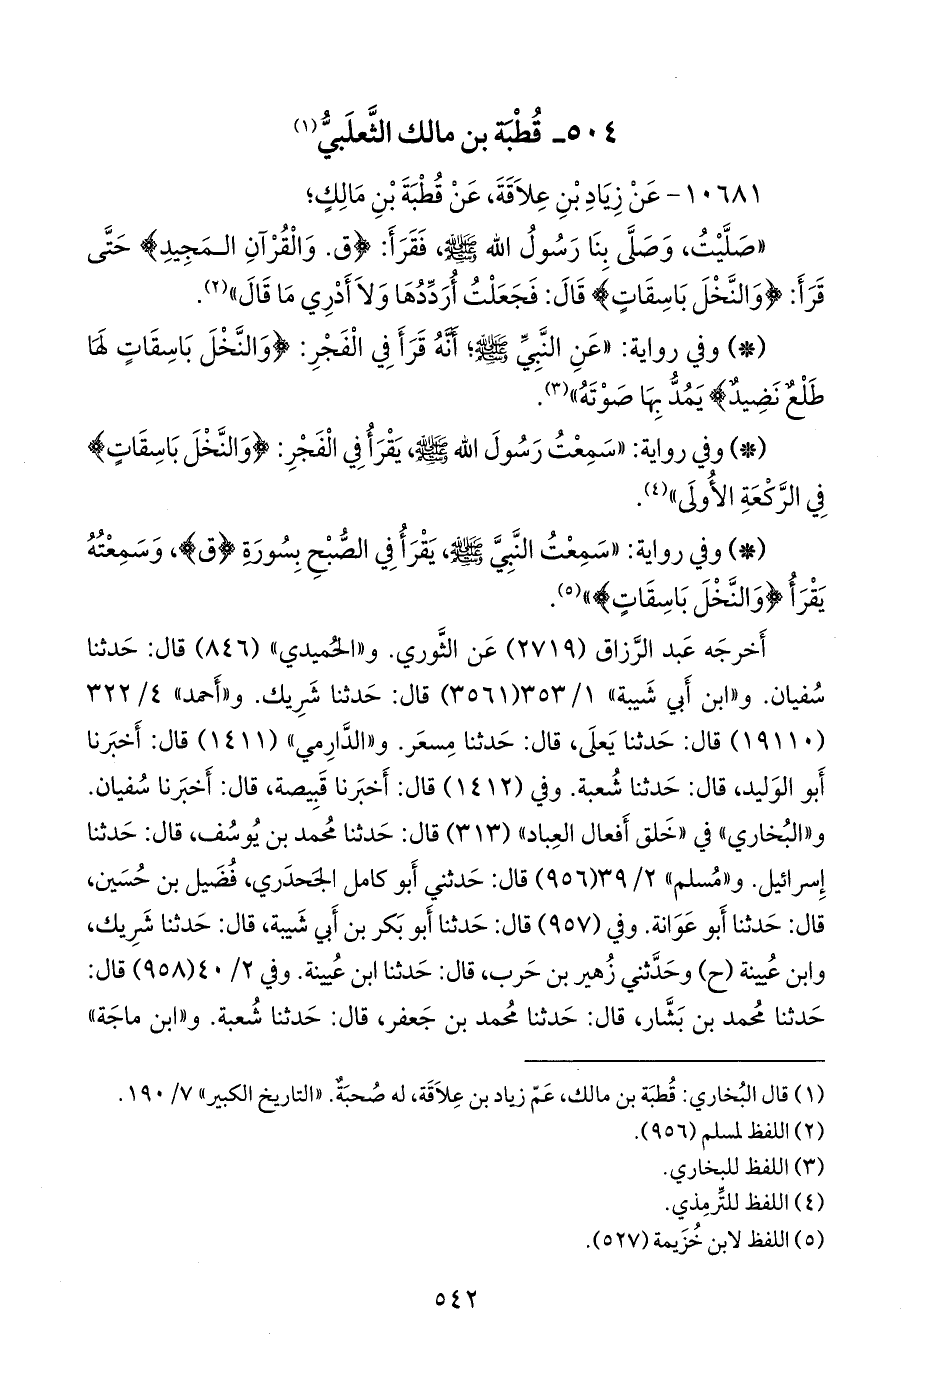 ٥٠٤ـ قُطْبَة بن مالك الثَّعلَبيُّ(١)
١٠٦٨١- عَنْ زِيَادِ بْنِ عِلاَقَةَ، عَنْ قُطْبَةَ بْنِ مَالِكٍ؛
«صَلَّيْتُ، وَصَلَّى بِنَا رَسُولُ الله ﷺ، فَقَرَأَ: ﴿ق. وَالْقُرْآنِ الـمَجِيدِ﴾ حَتَّى
قَرَأَ: ﴿وَالنَّخْلَ بَاسِقَاتٍ﴾ قَالَ: فَجَعَلْتُ أُرَدِّدُهَا وَلاَ أَدْرِي مَا قَالَ»(٢).
(*) وفي رواية: «عَنِ النَّبِيِّ ﷺ؛ أَنَّهُ قَرَأَ فِي الْفَجْرِ: ﴿وَالنَّخْلَ بَاسِقَاتٍ لَهَا
طَلْعٌ نَضِيدٌ﴾ يَمُدُّ بِهَا صَوْتَهُ»(٣).
(*) وفي رواية: «سَمِعْتُ رَسُولَ الله ﷺ، يَقْرَأُ فِي الْفَجْرِ: ﴿وَالنَّخْلَ بَاسِقَاتٍ﴾
فِي الرَّكْعَةِ الأُولَى»(٤).
(*) وفي رواية: «سَمِعْتُ النَّبِيَّ ﷺ، يَقْرَأُ فِي الصُّبْحِ بِسُورَةِ ﴿ق﴾، وَسَمِعْتُهُ
يَقْرَأُ ﴿وَالنَّخْلَ بَاسِقَاتٍ﴾»(٥).
أَخرجَه عَبد الرَّزاق (٢٧١٩) عَن الثَّوري. و«الحُميدي» (٨٤٦) قال: حَدثنا
سُفيان. و«ابن أَبي شَيبة» ١/ ٣٥٣(٣٥٦١) قال: حَدثنا شَرِيك. و«أَحمد» ٤/ ٣٢٢
(١٩١١٠) قال: حَدثنا يَعلَى، قال: حَدثنا مِسعَر. و«الدَّارِمي» (١٤١١) قال: أَخبَرنا
أَبو الوَليد، قال: حَدثنا شُعبة. وفي (١٤١٢) قال: أَخبَرنا قَبِيصة، قال: أَخبَرنا سُفيان.
و«البُخاري» في «خَلق أَفعال العِباد» (٣١٣) قال: حَدثنا مُحمد بن يُوسُف، قال: حَدثنا
إِسرائيل. و«مُسلم» ٢/ ٣٩(٩٥٦) قال: حَدثني أَبو كامل الجَحدَري، فُضَيل بن حُسَين،
قال: حَدثنا أَبو عَوَانة. وفي (٩٥٧) قال: حَدثنا أَبو بَكر بن أَبي شَيبة، قال: حَدثنا شَرِيك،
وابن عُيينة (ح) وحَدَّثني زُهير بن حَرب، قال: حَدثنا ابن عُيينة. وفي ٢/ ٤٠(٩٥٨) قال:
حَدثنا مُحمد بن بَشَّار، قال: حَدثنا مُحمد بن جَعفر، قال: حَدثنا شُعبة. و«ابن ماجَة»
(١) قال البُخاري: قُطبَة بن مالك، عَمّ زياد بن عِلاَقَة، له صُحبَةٌ. «التاريخ الكبير» ٧/ ١٩٠.
(٢) اللفظ لمسلم (٩٥٦).
(٣) اللفظ للبخاري.
(٤) اللفظ للتِّرمِذي.
(٥) اللفظ لابن خُزَيمة (٥٢٧).
٥٤٢